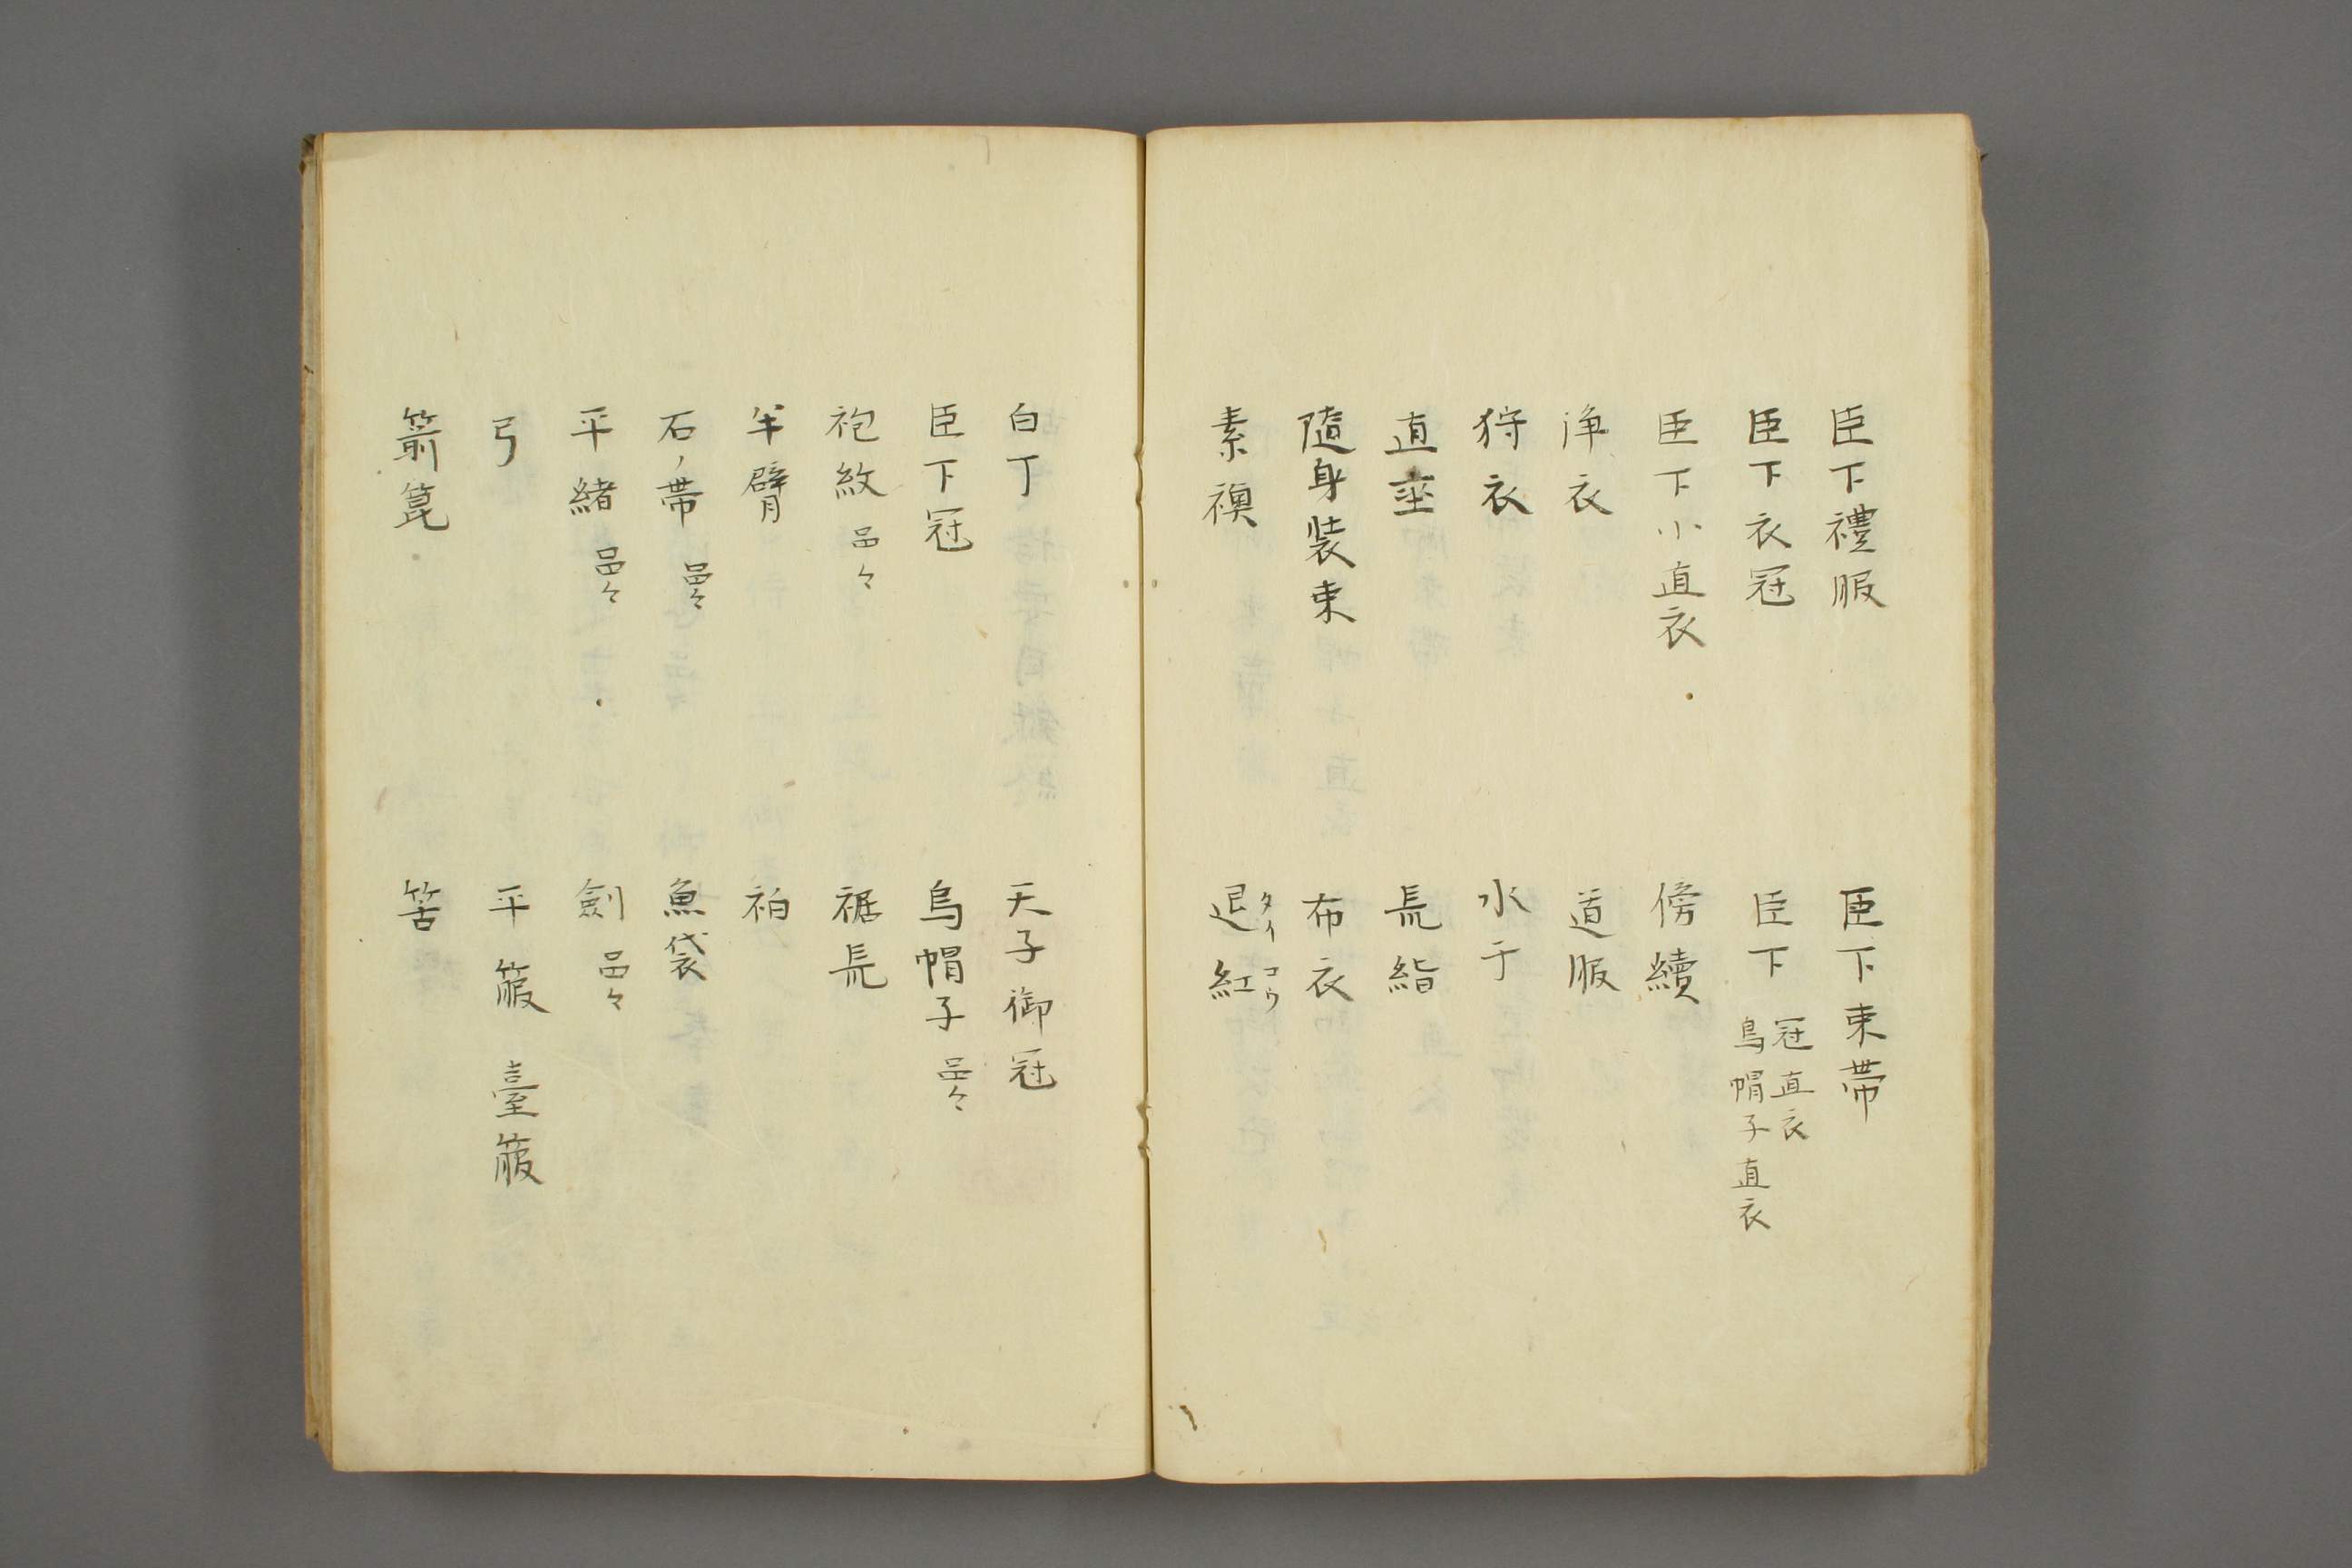 臣下禮服　臣下束帶
臣下衣冠　臣下 冠直衣 烏帽子直衣
臣下小直衣　傍續
浄衣　道服
狩衣　水干
直垂　長絹
隨身装束　布衣
素襖　退紅 タイコウ
白丁　天子御冠
臣下冠　烏帽子 品々
袍紋 品々　裾長
半臂　袙
石ノ帶 品々　魚袋
平緒 品々　劔 品々
弓　平箙 臺箙
箭箆　筈